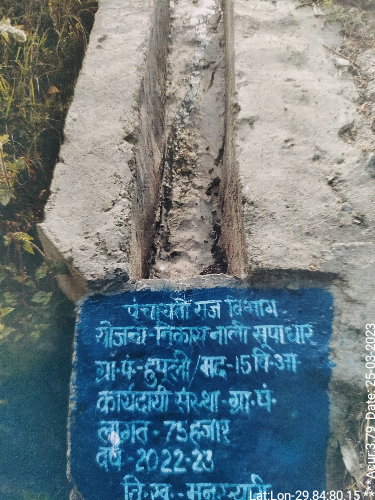 पंचायती राज विभाग
योजना-निकास नाली सूपाधार
ग्रा.पं-हुपली/मद-15वि.आ
कार्यदायी संस्था-ग्रा.पं.
लागत-75हजार
वर्ष-2022-23
वि.ख.-
Lat:Lon-29.84:80.15
**Acur:3.79 Date:25-03-2023